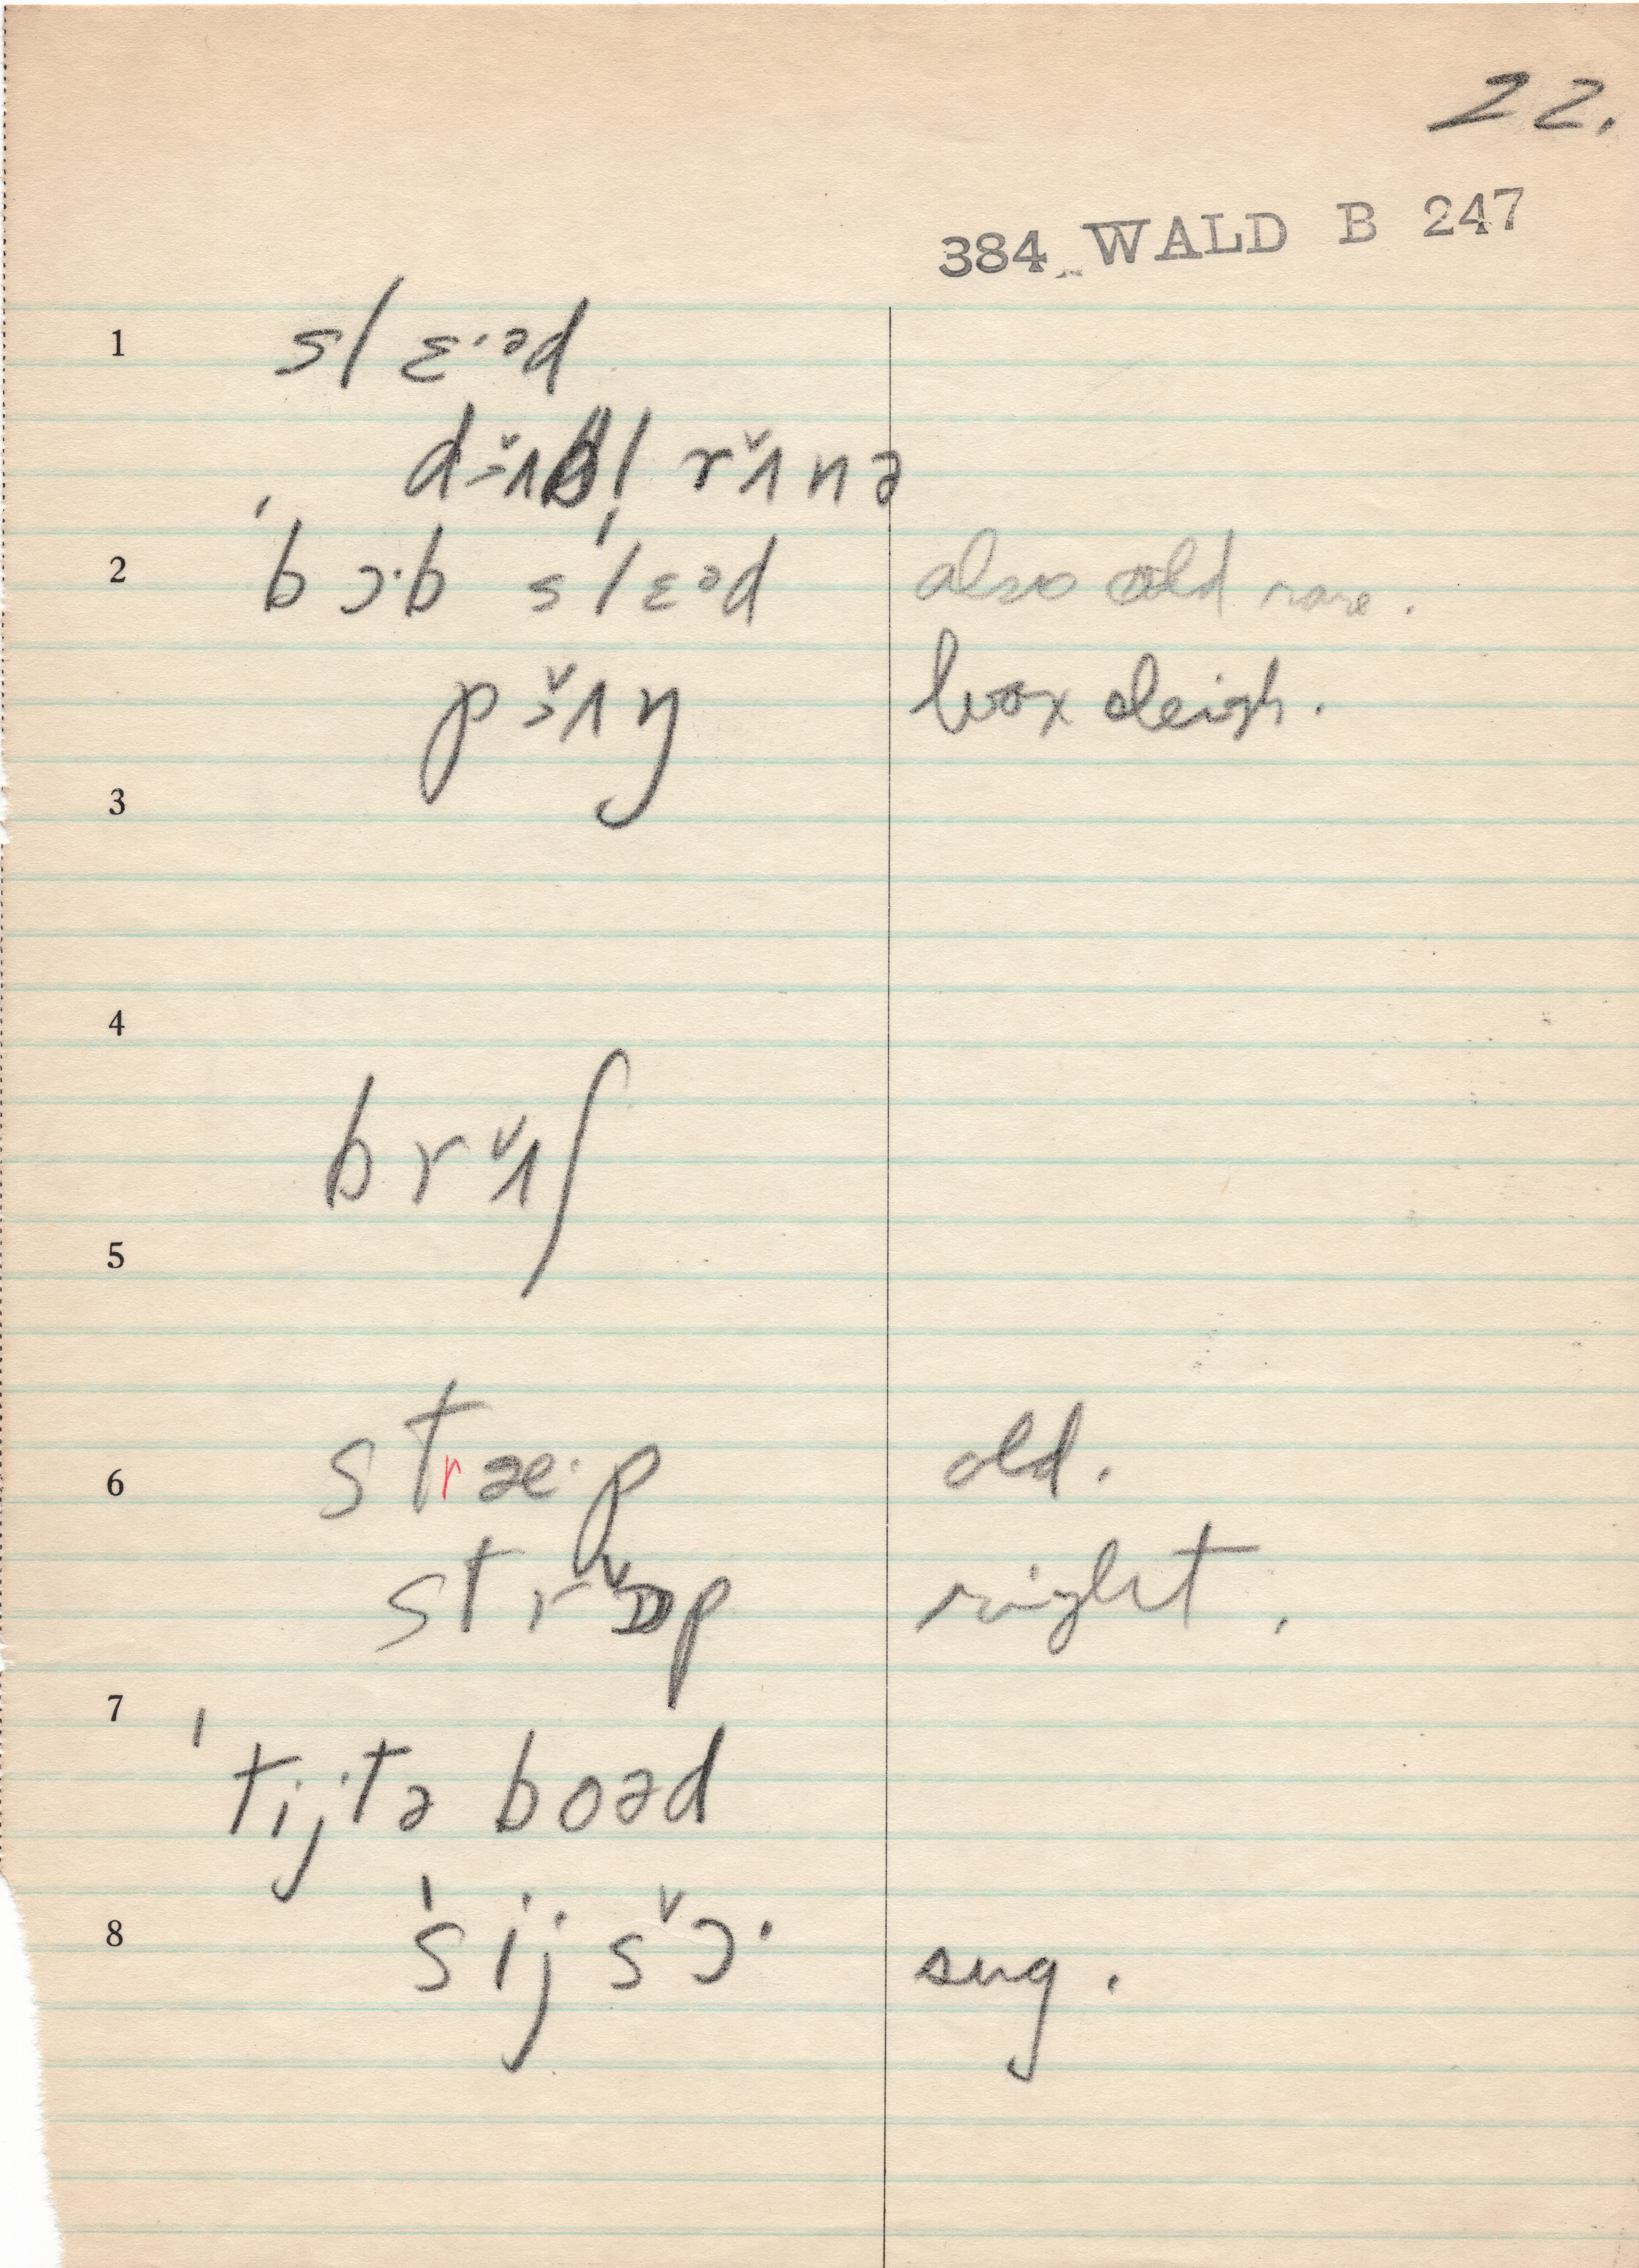 22.
384 WALD B 247
1 slɛ·əd
dɜ̌ʌbl̩ rɜ̌ʌnə
2 ˈbɔ·b ˌslɛəd also old rare.
pɜ̌ʌŋ box sleigh.
3
4
brɜ̌ʌʃ
5
6 stræ·p old.
strɒ̌p right.
7
ˈtijtə boəd
8 ˈsijsɔ̌· sug.